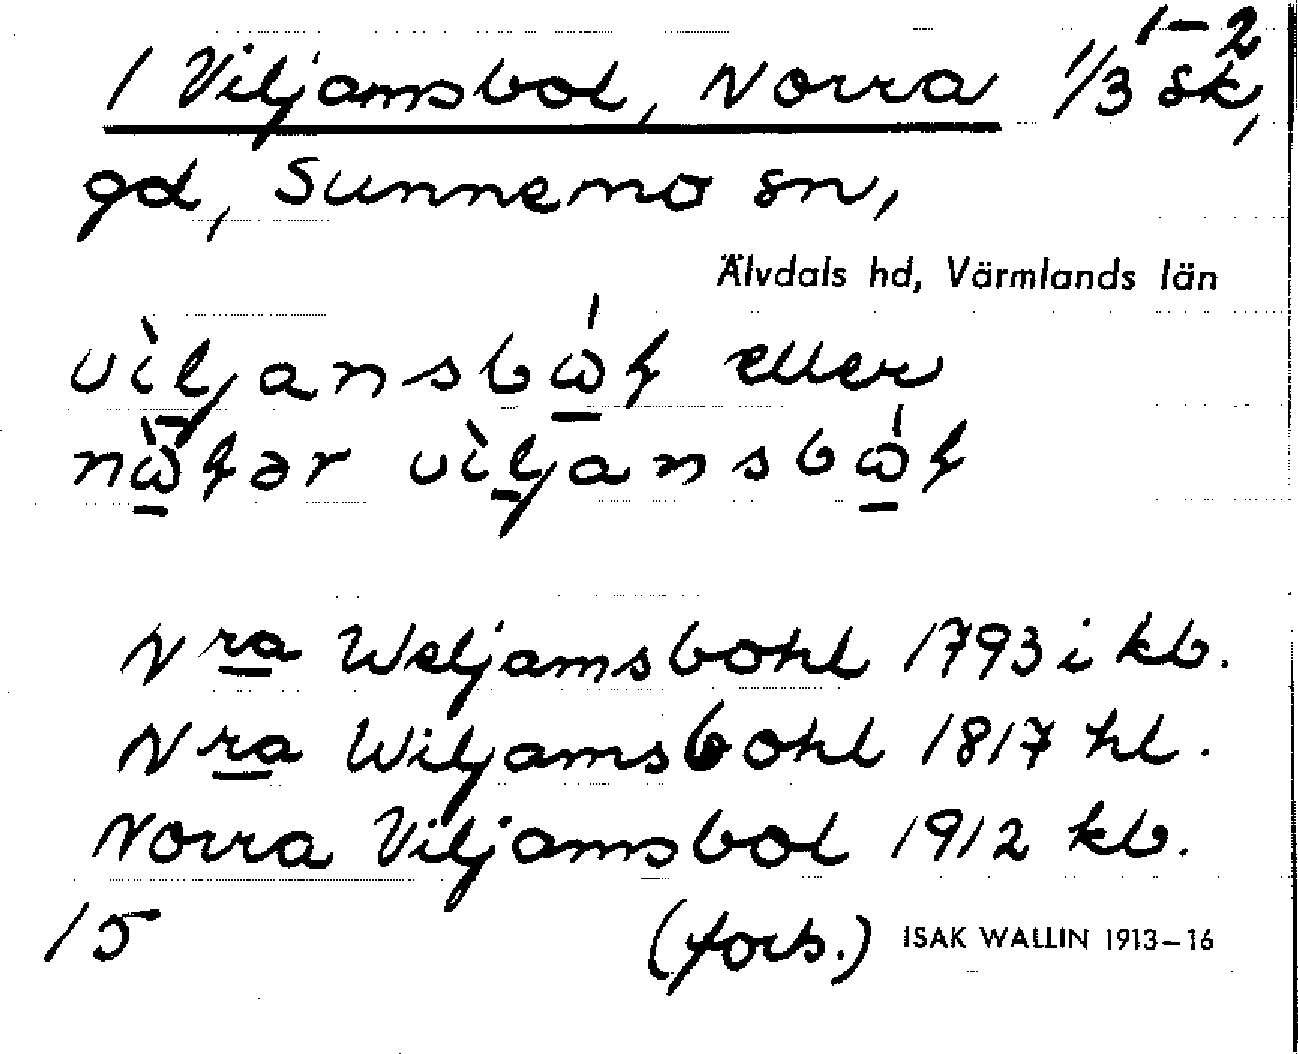 1-2
1 Viljamsbol, Norra 1/3 sk,
gd, Sunnemo sn,
Älvdals hd, Värmlands län
eller
Nra Weljamsbohl 1793 i kb.
Nra Wiljamsbohl 1817 hl.
Norra Viljamsbol 1912 kb.
15 (forts.) ISAK WALLIN 1913-16